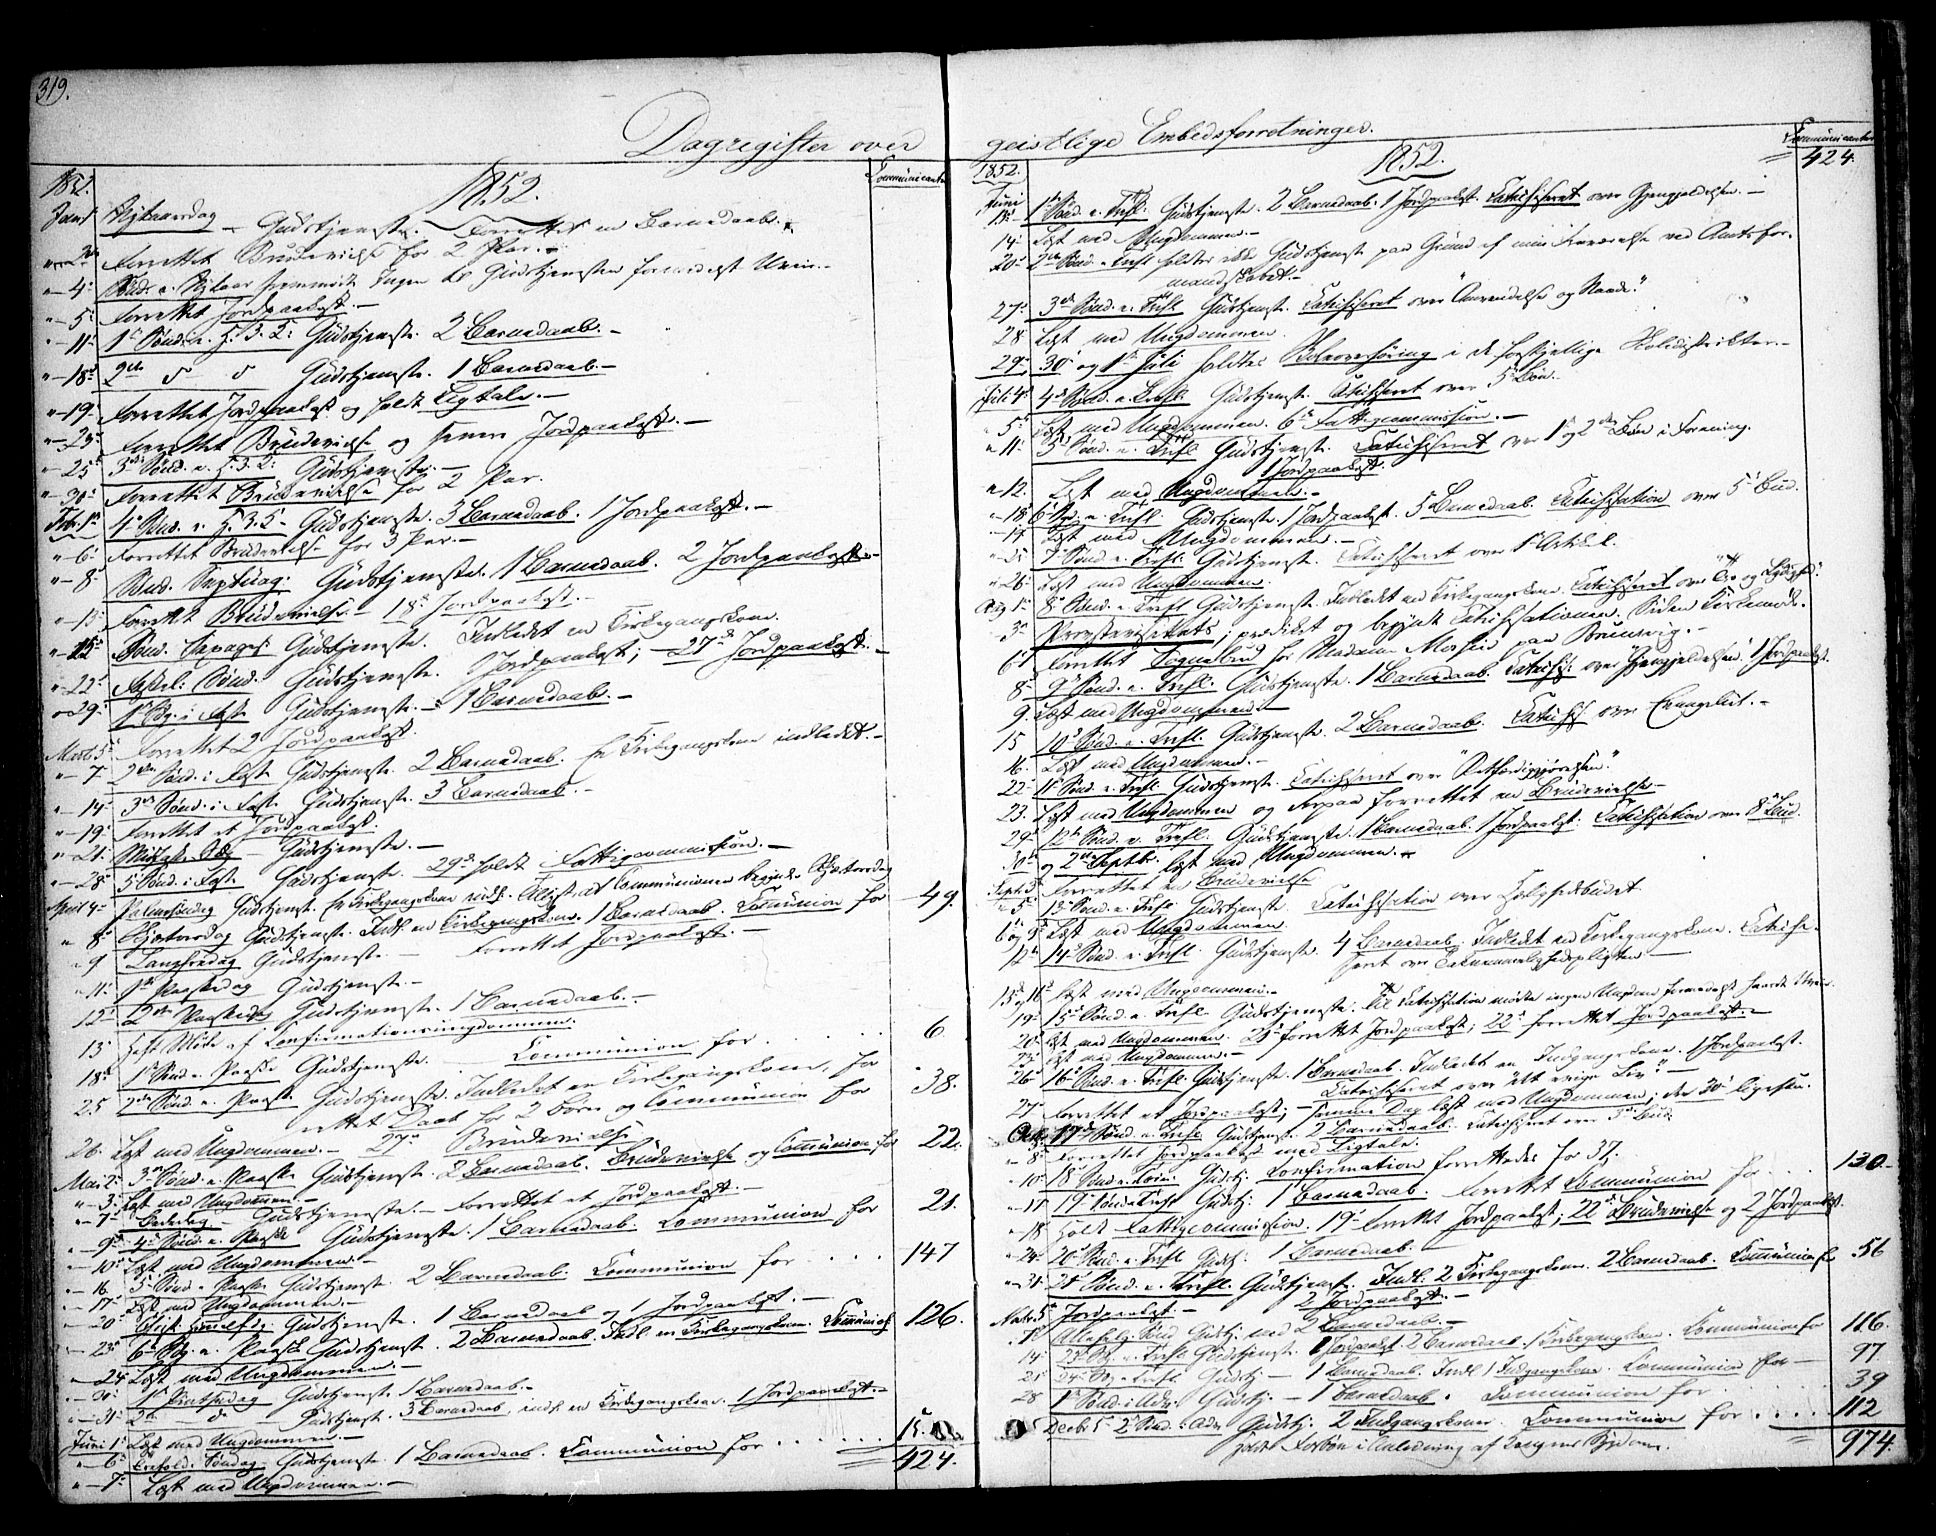 319.
Dagregister over geistlige Embedsforretninger.
1852. 1852. Communicanter
Janr 1 Nytaarsdag – Gudstjeneste. Forrettet en Barnedaab.
Forrettet Brudevielse for 2 Par. –
"– 4 Sønd. e. Nytaar fremmødt Ingen til Gudstjenesten formedelst Uveir. –
"– 5 Forrettet Jordpaakast. –
"– 11 1ste Sønd. e. H. 3. K: Gudstjeneste. 2 Barnedaab. –
"– 18 2den Gudstjeneste. 1 Barnedaab. –
"– 19 Forrettet Jordpaakast og holdt Ligtale. –
"– 23 Forrettet Brudevielse og senere Jordpaakast. –
"– 25 3die Sønd. e. H. 3. K: Gudstjeneste. –
"– 30 Forrettet Brudevielse for 2 Par.
Febr. 1 4de Sønd. e. H. 3. K – Gudstjeneste. 3 Barnedaab. 1 Jordpaakast. –
"– 6 Forrettet Brudevielse for 3 Par. –
"– 8 Sønd. Septuag: Gudstjeneste. 1 Barnedaab. 2 Jordpaakast. –
"– 13 Forrettet Brudevielse – 18de Jordpaakast. –
"– 15 Sønd. Sexages Gudstjeneste. Indledet en Kirkegangskone.
"– 22 Fastel: Sønd. Gudstjeneste. 1 Jordpaakast; – 27de Jordpaakast. –
"– 29 1ste S. i Faste Gudstjeneste. – 1 Barnedaab. –
Marts 5 Forrettet 2 Jordpaakast.
"– 7 2den Sønd. i Faste Gudstjeneste. 2 Barnedaab. En Kirkegangskone indledet. –
"– 14 3die Sønd. i Faste Gudstjeneste. 3 Barnedaab. –
"– 19 Forrettet et Jordpaakast.
"– 21 Midfaste Søg – Gudstjeneste. –
"– 28 5 Sønd. i Faste Gudstjeneste. 29de holdt Fattigcommission. –
April 4 Palmesøndag Gudstjenest. En Kirkegangskone indl. Communionen begynde Skjærtorsdag
" 8 Skjærtorsdag Gudstjeneste. Indl. en Kirkegangskone. 1 Barnedaab. Communion for 49.
" 9 Langfredag Gudstjeneste – Forrettet Jordpaakast. –
" 11 1ste Paaskedag Gudstjeneste. –
12 2den Paaskedag Gudstjeneste. 1 Barnedaab. –
13 holdt Møde af Confirmationsungdommen.
18 1ste Sønd e. Paaske Gudstjeneste. Communion for . . . . 6.
25 2den Sønd. e. Paaske Gudstjeneste. Indledet en Kirkegangskone, for
rettet Daab for 2 Børn og Communion for 38.
26. Læst med Ungdommen. – 27de Brudevielse
Mai 2 3die Sønd. e. Paaske Gudstjeneste. 2 Barnedaab. Brudevielse og Communion for 22.
"– 3 Læst med Ungdommen. –
"– 7 Bededag – Gudstjeneste. – Forrettet et Jordpaakast. –
"– 9 4de Sønd. e. Paaske Gudstjeneste. 1 Barnedaab. Communion for 21.
"– 10 Læst med Ungdommen. –
"– 16 5 Sønd. e Paaske Gudstjenest. 2 Barnedaab. Communion for . . . . 147
"– 17 Læst med Ungdommen. –
"– 20 Christi Himmelfdg. Gudstjeneste. 1 Barnedaab og 1 Jordpaakast. –
"– 23 6te S. e. Paaske Gudstjeneste. 2 Barnedaab. Indl. en Kirkegangskone. Communion f 126.
"– 24 Læst med Ungdommen. –
"– 30 1ste Pintsedag Gudstjeneste. 1 Barnedaab. –
"– 31 2den do – Gudstjenest. 3 Barnedaab, indl. en Kirkegangskone. 1 Jordpaakast. –
Juni 1 Læst med Ungdommen. –
" 6 Trefold. Søndag – Gudstjeneste. 1 Barnedaab. Communion for . . . . . . 15.
424.
"– 7 Læst med Ungdommen. –
1852. 1852. Communicanter
424.
Juni 13 1ste Sønd. e. Trefl. Gudstjeneste. 2 Barnedaab. 1 Jordpaakst. Catechiseret over Gjengjældelsen. –
14 Læst med Ungdommen. –
20 2den Sønd. e Trefl holdtes ikke Gudstjeneste paa Grund af min Fraværelse ved Amtsfor-
mandskabet. –
27 3die Sønd. e. Trefl. Gudstjeneste. Catechiseret over "Anvendelse og Naade."
28 Læst med Ungdommen
29 30 og 1ste Juli holdtes Skoleoverhøring i de forskjellige Skoledistrikter. –
Juli 4 4de Sønd. e. Trefl. Gudstjeneste. Catechiseret over 5te Bøn.
" 5 Læst med Ungdommen. 6te Fattigcommission. –
" 11 5te Sønd. e. Trefl. Gudstjeneste. Catechiseret over 1ste og 2den Bøn i Forening.
1 Jordpaakast.
"– 12. Læst med Ungdommen. –
"– 18 6te S. e. Trefl. Gudstjeneste. 1 Jordpaakast. 5 Barnedaab. Catechisation over 5te Bud.
Læst med Ungdommen. –
"– 25 7de Sønd e. Trefl. Gudstjeneste. Catechiseret over 1ste Artikel.
"– 26 Læst med Ungdommen.
Aug 1 8de Sønd. e. Trefl Gudstjeneste. Indledet en Kirkegangskone. Catechiseret over "Tro og Lydighed".
3 Provstevisitats; prædiket og begyndt Catechisationen. Siden Forlemøde.
6 Forrettet Sognebud for Madame paa Brunsvig. –
8 9de Sønd. e. Trefl. Gudstjeneste. 1 Barnedaab. Catechis. over "Gjengjældelsen. 1 Jordpaakst.
9. Læst med Ungdommen. –
15 10de Sønd. e. Trefl. Gudstjeneste. 2 Barnedaab. Catechis over Evangeliet. –
16. Læst med Ungdommen. –
22 11te Sønd. e. Trefl. Gudstjeneste. Catechiseret over "Retfærdiggjørelsen".
23. Læst med Ungdommen og forrettet en Brudevielse –
29 12te Sønd. e. Trefl. Gudstjeneste. 1 Barnedaab. 1 Jordpaakst. Catechisation over 8de Bud.
30te og 2den Septbr. læst med Ungdommen. –
Septr. 3 Forrettet en Brudevielse
" 5 13de Sønd. e. Trefl. Gudstjeneste. Catechisation over Helgesedbudet
6 og 9 Læst med Ungdommen.
12 14de Sønd. e. Trefl. Gudstjeneste. 4 Barnedaab. Indledet en Kirkegangskone. Catechi-
seret over Taknemmelighedspligten –
13 og 16 Læst med Ungdommen. –
19 15de Sønd. e. Trefl. Gudstjeneste. Til Catechisation mødte ingen Ungdom formedelst haardt Uveir.
20 Læst med Ungdommen. 21de forrettet Jordpaakast; 22de forrettet Jordpaakast. –
23 Læst med Ungdommen. –
26 16de Sønd. e. Trefl. Gudstjeneste. 1 Barnedaab. Indledet en Indgangskone. 1 Jordpaakast.
Catechiseret over "det evige Liv." –
27 Forrettet et Jordpaakast; – samme Dag læst med Ungdommen; den 30te ligesaa.
Octbr. 17de Sønd. e. Trefl. Gudstjenest. 2 Barnedaab. Catechiseret over Bud.
"– 8 Forrettet Jordpaakast med Ligtale.
"– 10 18de Sønd e. Trin. Gudstj. Confirmation forrettedes for 37.
"– 17 19de Sønd e Trefl Gudstj. 1 Barnedaab. Forrettet Communion for . . . . 130 –
"– 18 holdt Fattigcommission. 19de forrettet Jordpaakast; 22de Brudevielse og 2 Jordpaakast.
"– 24 20de Sønd. e Trefl Gudstj. 1 Barnedaab. –
"– 31 21de Sønd. e. Trefl. Gudstjenest. Indl. 2 Kirkegangskoner. 2 Barnedaab. Communion for 56
2 Jordpaakast. –
Novbr. 5 Jordpaakast. –
7 Allehelg. Sønd Gudstj. med 2 Barnedaab. –
14 23de S. e. Trefl Gudstjeneste. 1 Jordpaakst. 2 Barnedaab. 1 Kirkegangskone. Communion for 116
21 24de S. e Trefl Gudstj. – 1 Barnedaab. Indl 1 Indgangskone. Communion for – 97
28 1ste Sønd. i Adv. Gudstj. – 1 Barnedaab. Communion for . . . 39
Decbr 5 2den Sønd. i Adv. Gudstj. 2 Indgangskoner. Communion for . . . . 112
holdt Forbøn i Anledning af Kongens Sygdom. 974.